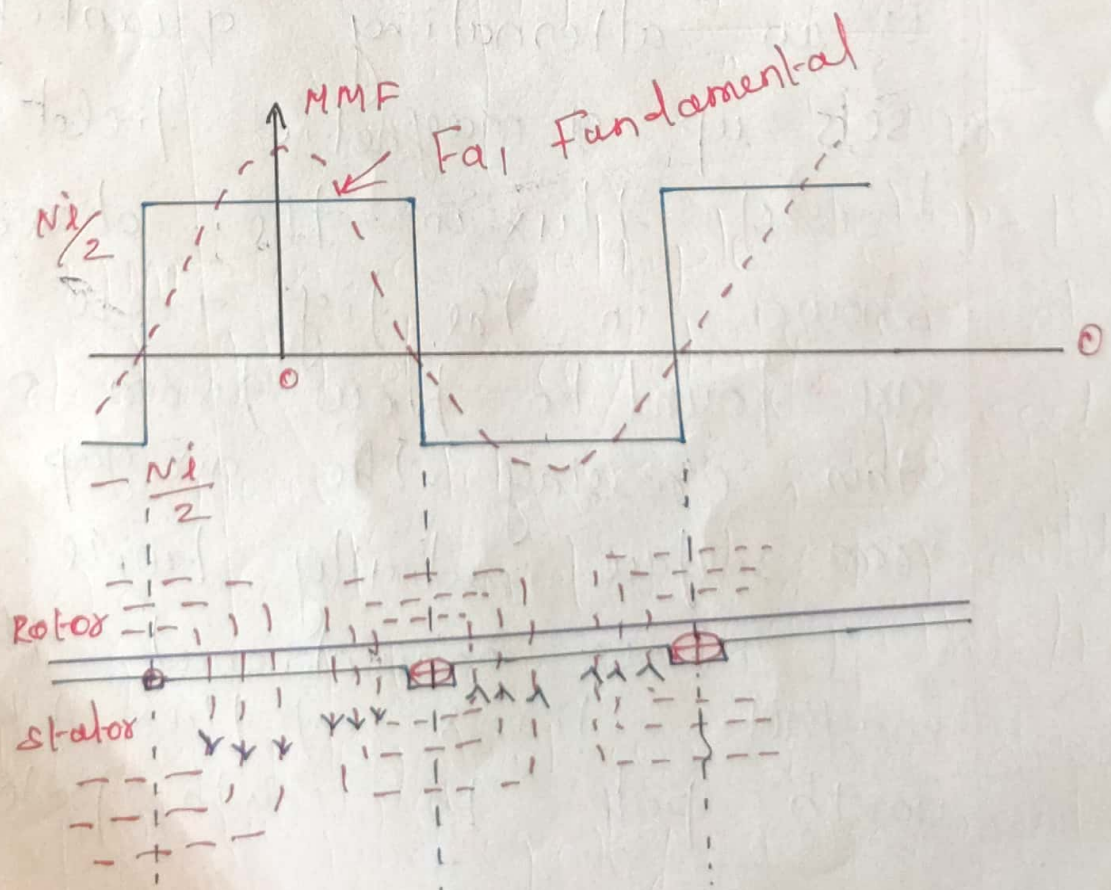 MMF
Fa1 Fundamental
Ni/2
0
θ
- Ni/2
Rotor
Stator